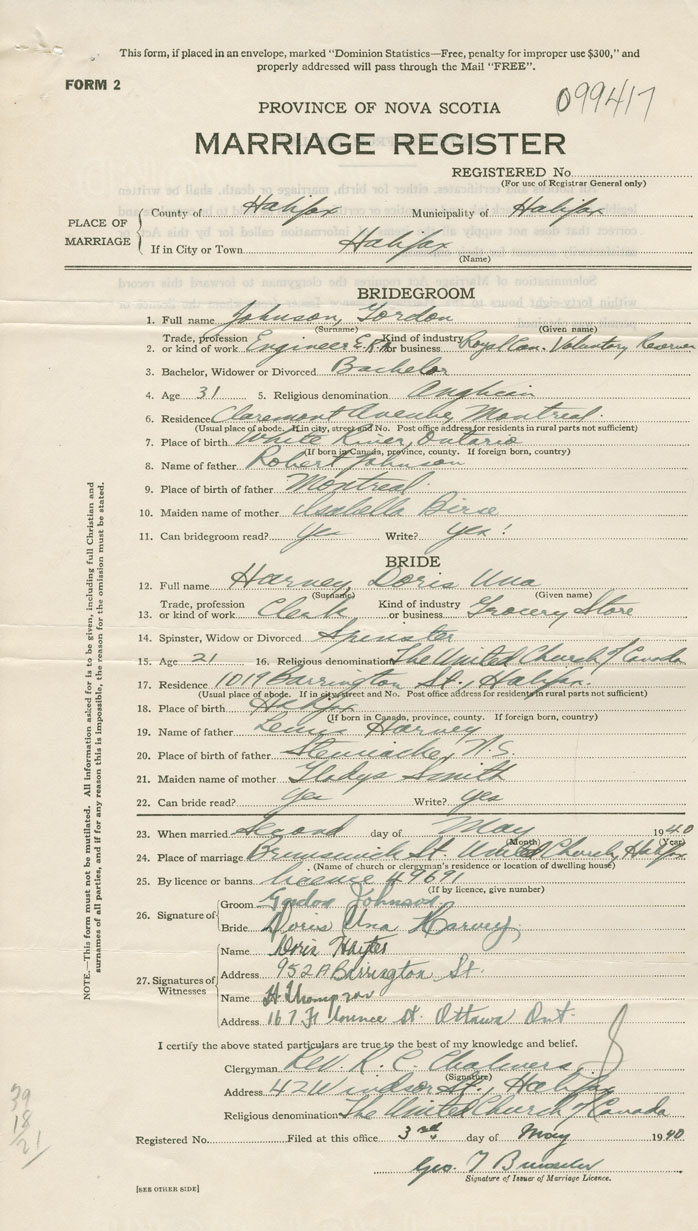 This form, if placed in an envelope, marked "Dominion Statistics—Free, penalty for improper use $300," and
properly addressed will pass through the Mail "FREE".
FORM 2
099417
PROVINCE OF NOVA SCOTIA
MARRIAGE REGISTER
REGISTERED No.
(For use of Registrar General only)
PLACE OF MARRIAGE
County of Halifax Municipality of Halifax
If in City or Town Halifax
(Name)
BRIDEGROOM
1. Full name Johnson, Gordon
(Surname) (Given name)
2. Trade, profession or kind of work Engineer E.R.A. Kind of industry or business Royal Can. Voluntary Reserve
3. Bachelor, Widower or Divorced Bachelor
4. Age 31 5. Religious denomination Anglican
6. Residence Claremont Avenue, Montreal.
(Usual place of abode. If in city, street and No. Post office address for residents in rural parts not sufficient)
7. Place of birth White River, Ontario
(If born in Canada, province, county. If foreign born, country)
8. Name of father Robert Johnson
9. Place of birth of father Montreal.
10. Maiden name of mother Isabella Birse
11. Can bridegroom read? Yes Write? Yes!
BRIDE
12. Full name Harvey, Doris Una
(Surname) (Given name)
13. Trade, profession or kind of work Clerk Kind of industry or business Grocery Store
14. Spinster, Widow or Divorced Spinster
15. Age 21 16. Religious denomination The United Church of Canada
17. Residence 1019 Barrington St., Halifax.
(Usual place of abode. If in city street and No. Post office address for residents in rural parts not sufficient)
18. Place of birth Halifax
(If born in Canada, province, county. If foreign born, country)
19. Name of father Lewis Harvey
20. Place of birth of father Stewiacke, N.S.
21. Maiden name of mother Gladys Smith
22. Can bride read? Yes Write? Yes
23. When married Second day of May 1940
(Month) (Year)
24. Place of marriage Brunswick St. United Church, Halifax
(Name of church or clergyman's residence or location of dwelling house)
25. By licence or banns licence 49691
(If by licence, give number)
26. Signature of
Groom Gordon Johnson.
Bride Doris Una Harvey,
27. Signatures of Witnesses
Name Doris Hayter
Address 952A Barrington St.
Name H Thompson
Address 167 Florence St. Ottawa Ont.
I certify the above stated particulars are true to the best of my knowledge and belief.
Clergyman Rev. R. E. Chalmers,
(Signature)
Address 42 Windsor St., Halifax
Religious denomination The United Church of Canada
Registered No. Filed at this office 3rd day of May 1940
Geo. T
Signature of Issuer of Marriage Licence.
[SEE OTHER SIDE]
NOTE.—This form must not be mutilated. All information asked for is to be given, including full Christian and
surnames of all parties, and if for any reason this is impossible, the reason for the omission must be stated.
39
18
21